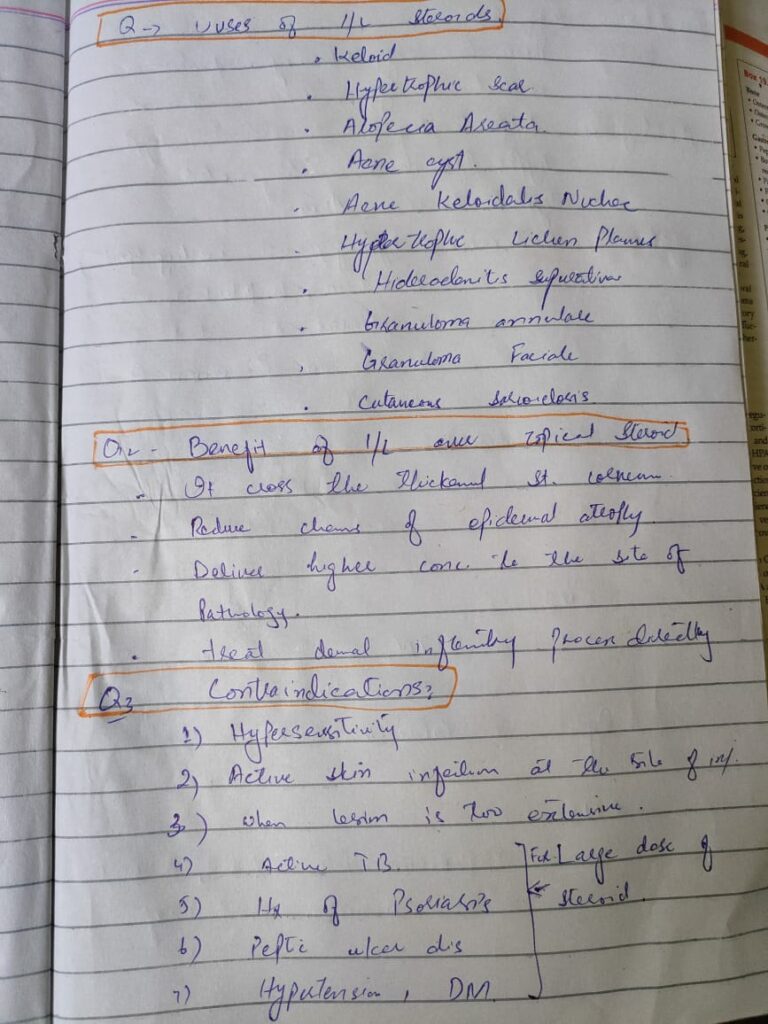 Q → Uses of I/L Steroids.
• Keloid
• Hypertrophic Scar.
• Alopecia Areata.
• Acne cyst.
• Acne Keloidalis Nuchae
Hypertrophic Lichen Planus
• Hideradenitis Supurativa
• Granuloma annulare
• Granuloma Faciale
• Cutaneous Sarcoidosis
Q2 - Benefit of I/L over topical Steroid
- It cross the thickened St. corneum.
- Reduce chans of epidermal atrophy.
- Deliver higher conc to the site of
Pathology.
• treat dermal inflamtry process directly
Q3 Contraindications:
1) Hypersensitivity
2) Active skin infection at the site of inj.
3) when lesion is too extensive.
4) Active TB. For Large dose of
5) Hx of Psoriasis ← Steroid.
6) Peptic ulcer dis
7) Hypertension, DM.
Box 19